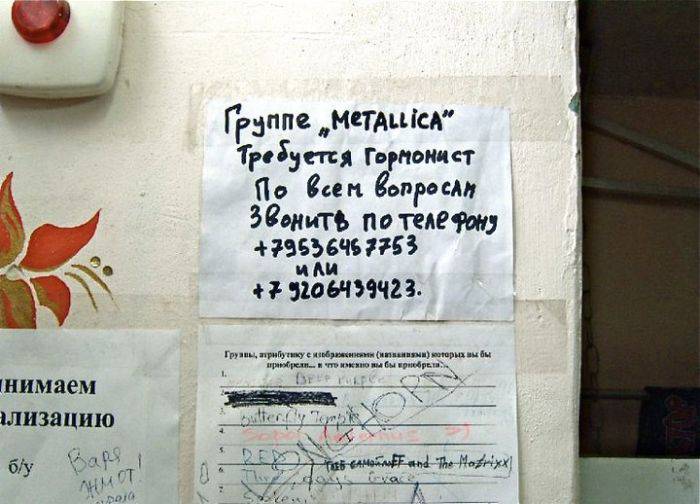 Группе „МЕТАLLiCA”
Требуется гормонист
По всем вопросам
Звонитв по телефону
+79536457753
или
+79206439423.
Группы, атрибутику с изображениями (названиями) которых вы бы
приобрели... и что именно вы бы приобрели...
1.
2.
3. Butterfly Temple
4. Sopor Aeternus
5. RED
Глеб САМОЙЛОFF and The Matrixx
6. Three days Grace
7.
KORN
нимаем
ализацию
б/у
Варя
ЖМОТ!